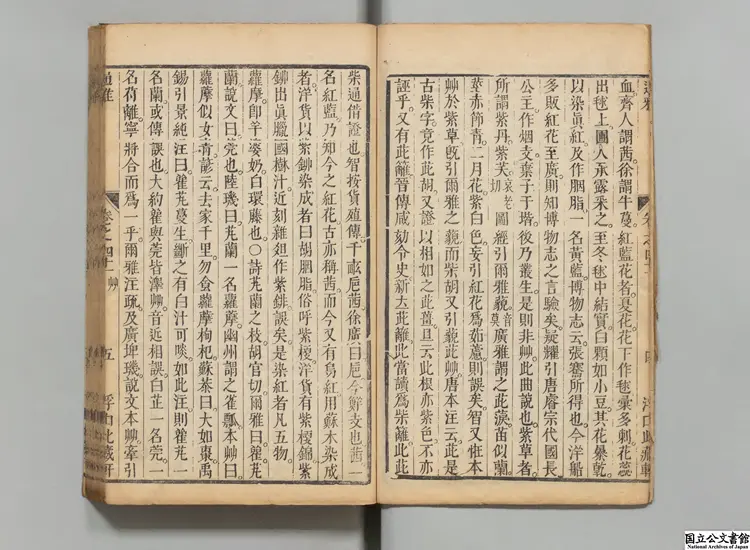 通雅 卷之四十一 四 浮山此藏軒
血齊人謂茜徐謂牛蔓紅藍花者夏花花下作梂彙多刺花蕊
出梂上圃人承露采之至冬梂中結實白顆如小豆其花曝乾
以染真紅及作胭脂一名黃藍博物志云張騫所得也今洋船
多販紅花至廣則知博物志之言驗矣疑耀引唐睿宗代國長
公主作烟支棄子于堦後乃叢生是則非艸此曲說也紫草者
所謂紫丹紫芺哀老切圖經引爾雅藐音莫廣雅謂之茈苗似蘭
莖赤節青二月花紫白色妄引紅花為茹藘則誤矣智又恠本
艸於紫草旣引爾雅之藐而柴胡又引藐茈艸唐本注云此是
古柴字竟作茈胡又證以相如之茈薑且云此根亦紫色不亦
誣乎又有茈籬晉傅咸劾令史新去茈籬此當讀為柴離此茈
柴通偝證也智按貨殖傳千畞巵茜徐廣曰巵今鮮支也茜一
名紅藍乃知今之紅花古亦稱茜而今又有烏紅用蘇木染成
者洋貨以紫鉚染成者曰胡胭脂俗呼紫梗洋貨有紫梗錦紫
鉚出真臘國樹汁近刻雜俎作紫誤矣是染紅者凡五物
蘿摩即羊婆奶白環藤也○詩芄蘭之枝胡官切爾雅曰雚芄
蘭說文曰莞也陸璣曰芄蘭一名蘿藦幽州謂之雀瓢本艸曰
蘿摩似女青諺云去家千里勿食蘿摩枸杞蘇恭曰大如棗禹
錫引景純注曰雚芄蔓生斷之有白汁可啖如此注則雚芄一
名蘭或傳誤也大約雚與莞皆澤艸音近相誤白芷一名莞一
名苻離寧將合而為一乎爾雅注疏及廣埤璣說文本艸牽引
通雅 卷之四十一 艸 五 浮山此藏軒
国立公文書館
National Archives of Japan